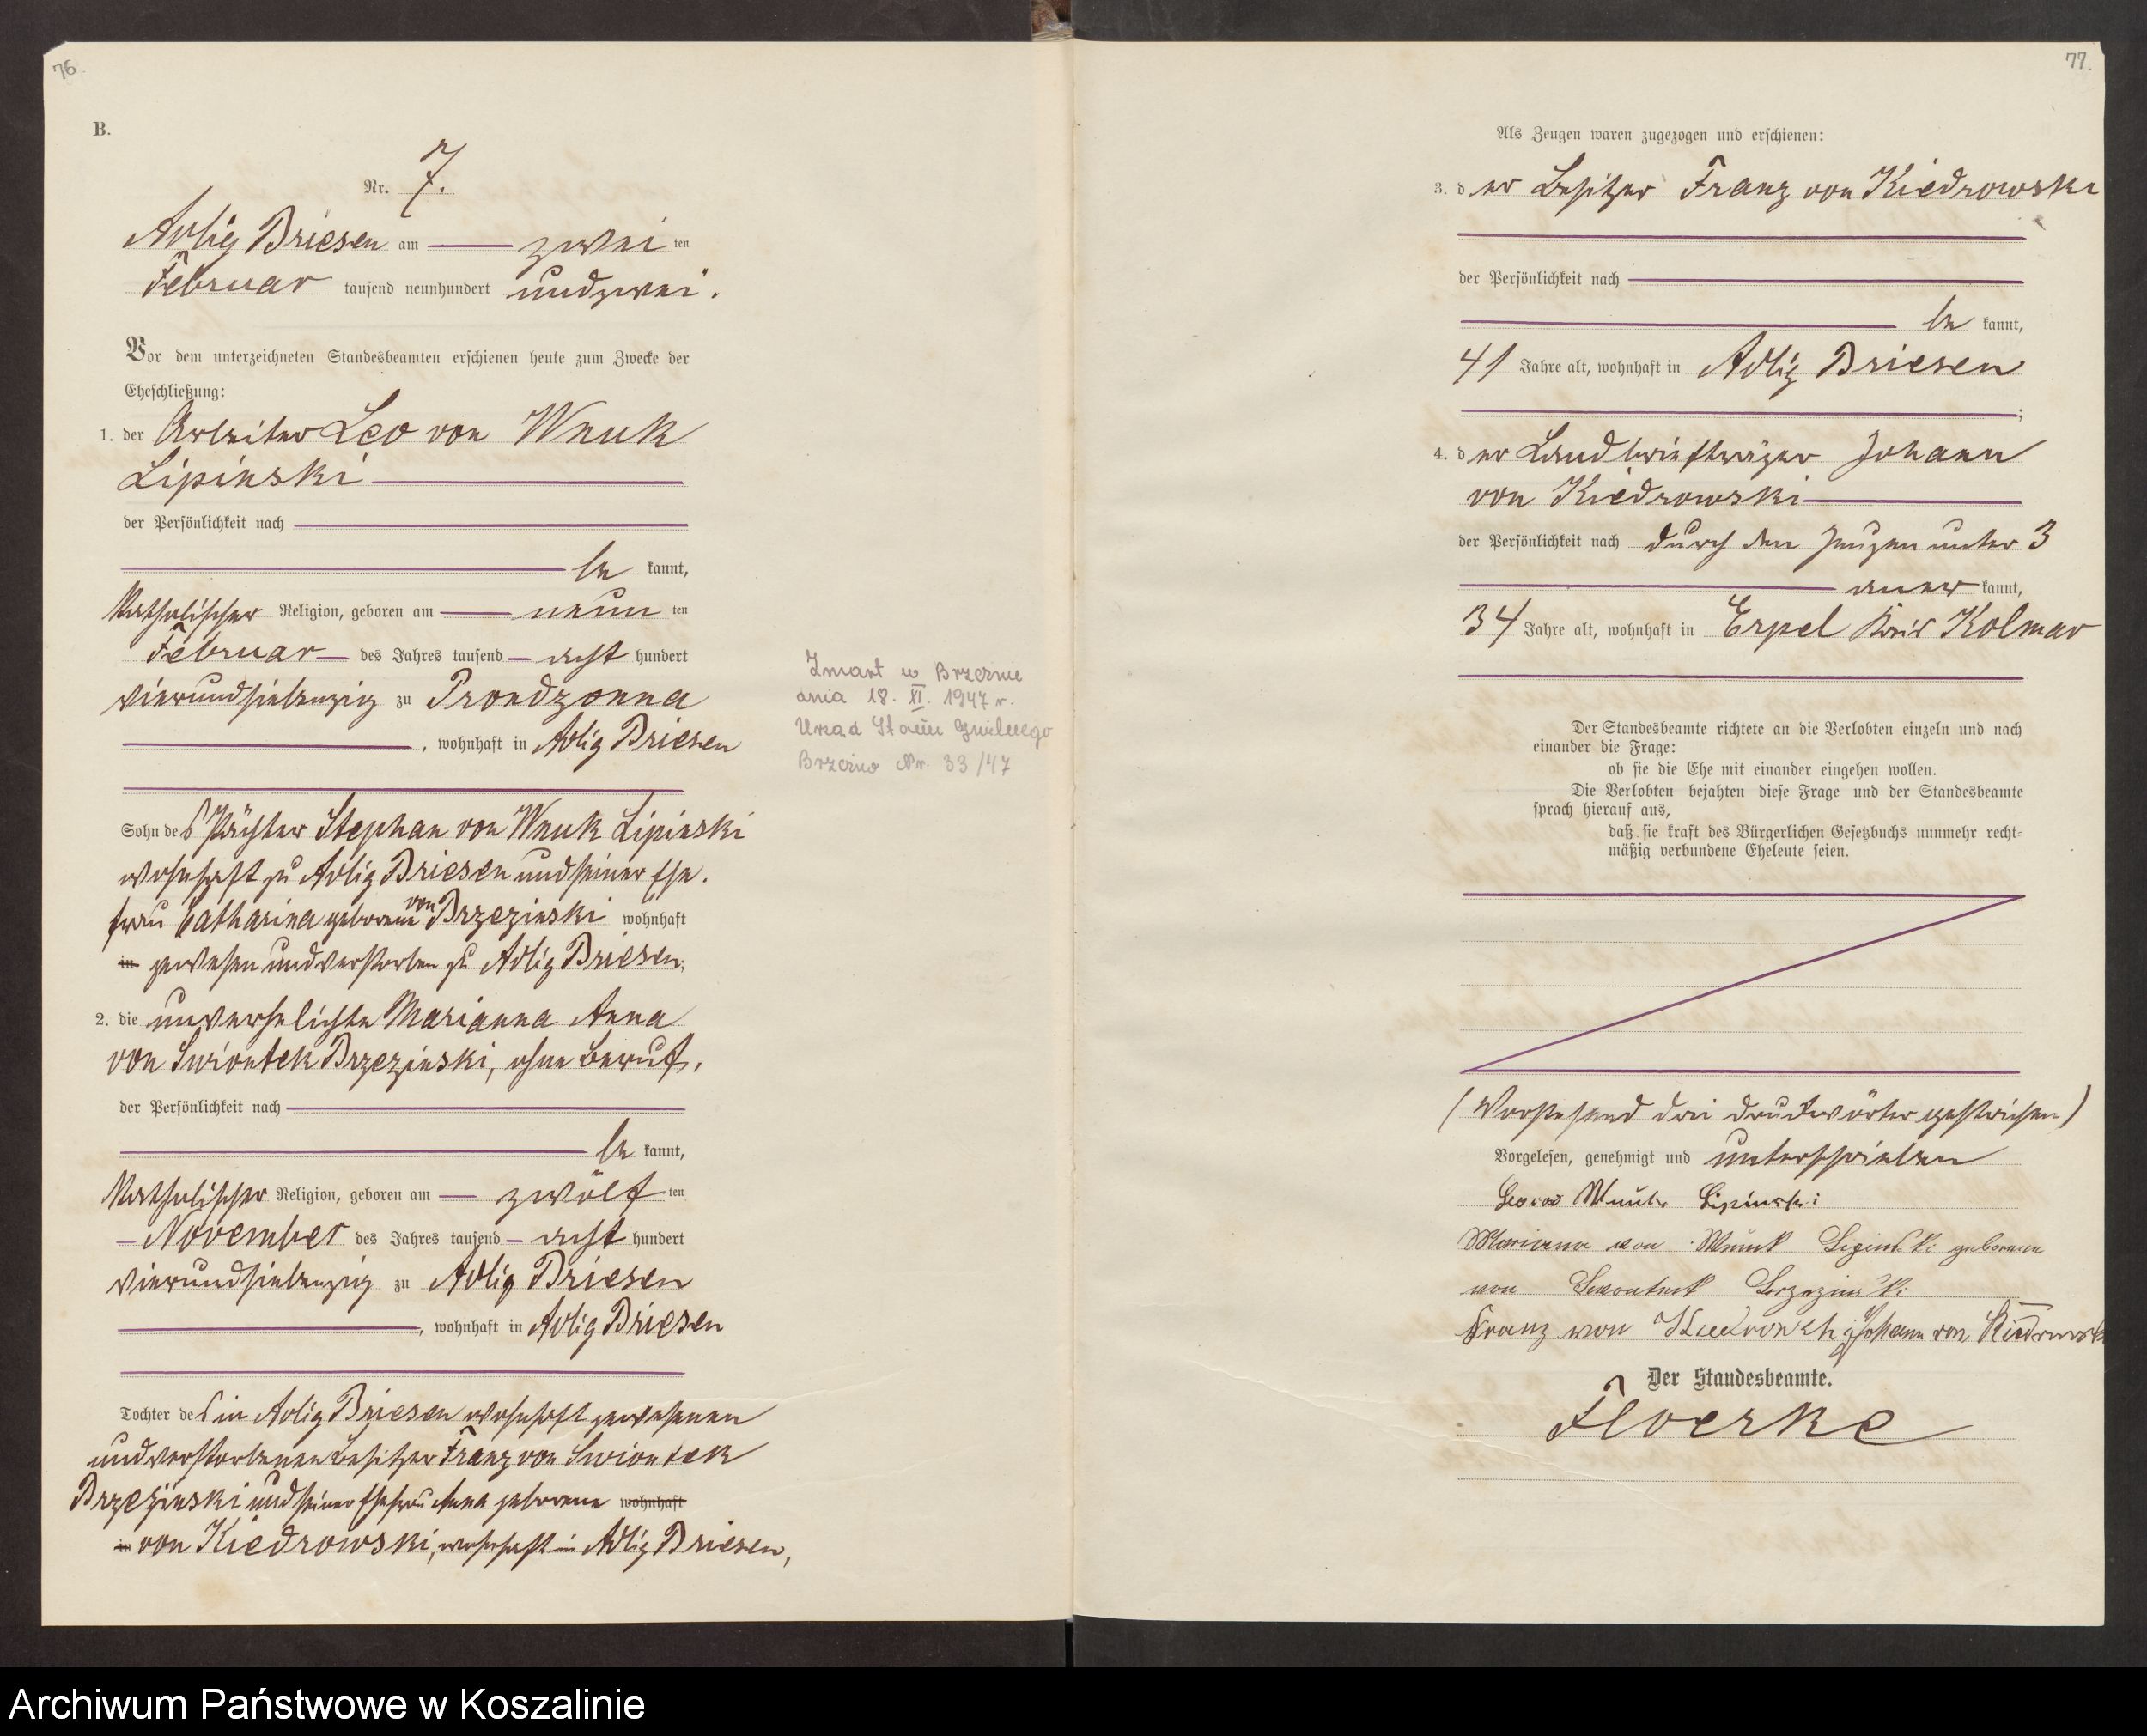 76.
B.
Nr. 7.
Adlig Briesen am zwei ten
Februar tausend neunhundert undzwei.
Vor dem unterzeichneten Standesbeamten erschienen heute zum Zwecke der
Eheschließung:
1. der Arbeiter Leo von Wnuk
Lipinski
der Persönlichkeit nach
be kannt,
katholischer Religion, geboren am neun ten
Februar des Jahres tausend acht hundert
vierundsiebenzig zu Prondzonna
, wohnhaft in Adlig Briesen
Sohn des Pächter Stephan von Wnuk Lipinski
wohnhaft zu Adlig Briesen und seiner Ehe.
frau Catharina geborene von Brzezinski wohnhaft
in gewesen und verstorben zu Adlig Briesen;
2. die unverehelichte Marianna Anna
von Swiontek Brzezinski, ohne Beruf,
der Persönlichkeit nach
be kannt,
katholischer Religion, geboren am zwölf ten
November des Jahres tausend acht hundert
vierundsiebenzig zu Adlig Briesen
, wohnhaft in Adlig Briesen
Tochter des in Adlig Briesen wohnhaft gewesenen
und verstorbenen Besitzer Franz von Swiontek
Brzezinski und seiner Ehefrau Anna geborene wohnhaft
in von Kiedrowski, wohnhaft in Adlig Briesen,
Zmarł w Brzeźnie
dnia 18. XI. 1947 r.
Urząd Stanu Cywilnego
Brzeźno Nr. 33/47
77.
Als Zeugen waren zugezogen und erschienen:
3. der Besitzer Franz von Kiedrowski
der Persönlichkeit nach
be kannt,
41 Jahre alt, wohnhaft in Adlig Briesen
;
4. der Landbriefträger Johann
von Kiedrowski
der Persönlichkeit nach durch den Zeugen unter 3
aner kannt,
34 Jahre alt, wohnhaft in Erpel Kreis Kolmar
Der Standesbeamte richtete an die Verlobten einzeln und nach
einander die Frage:
ob sie die Ehe mit einander eingehen wollen.
Die Verlobten bejahten diese Frage und der Standesbeamte
sprach hierauf aus,
daß sie kraft des Bürgerlichen Gesetzbuchs nunmehr recht=
mäßig verbundene Eheleute seien.
(Vorstehend drei Druckwörter gestrichen)
Vorgelesen, genehmigt und unterschrieben
Leo von Wnuk Lipinski
Mariana von Wnuk Lipinski geborene
von Brzezinski
Franz von Kiedrowski Johann von Kiedrowski
Der Standesbeamte.
Floerke
Archiwum Państwowe w Koszalinie